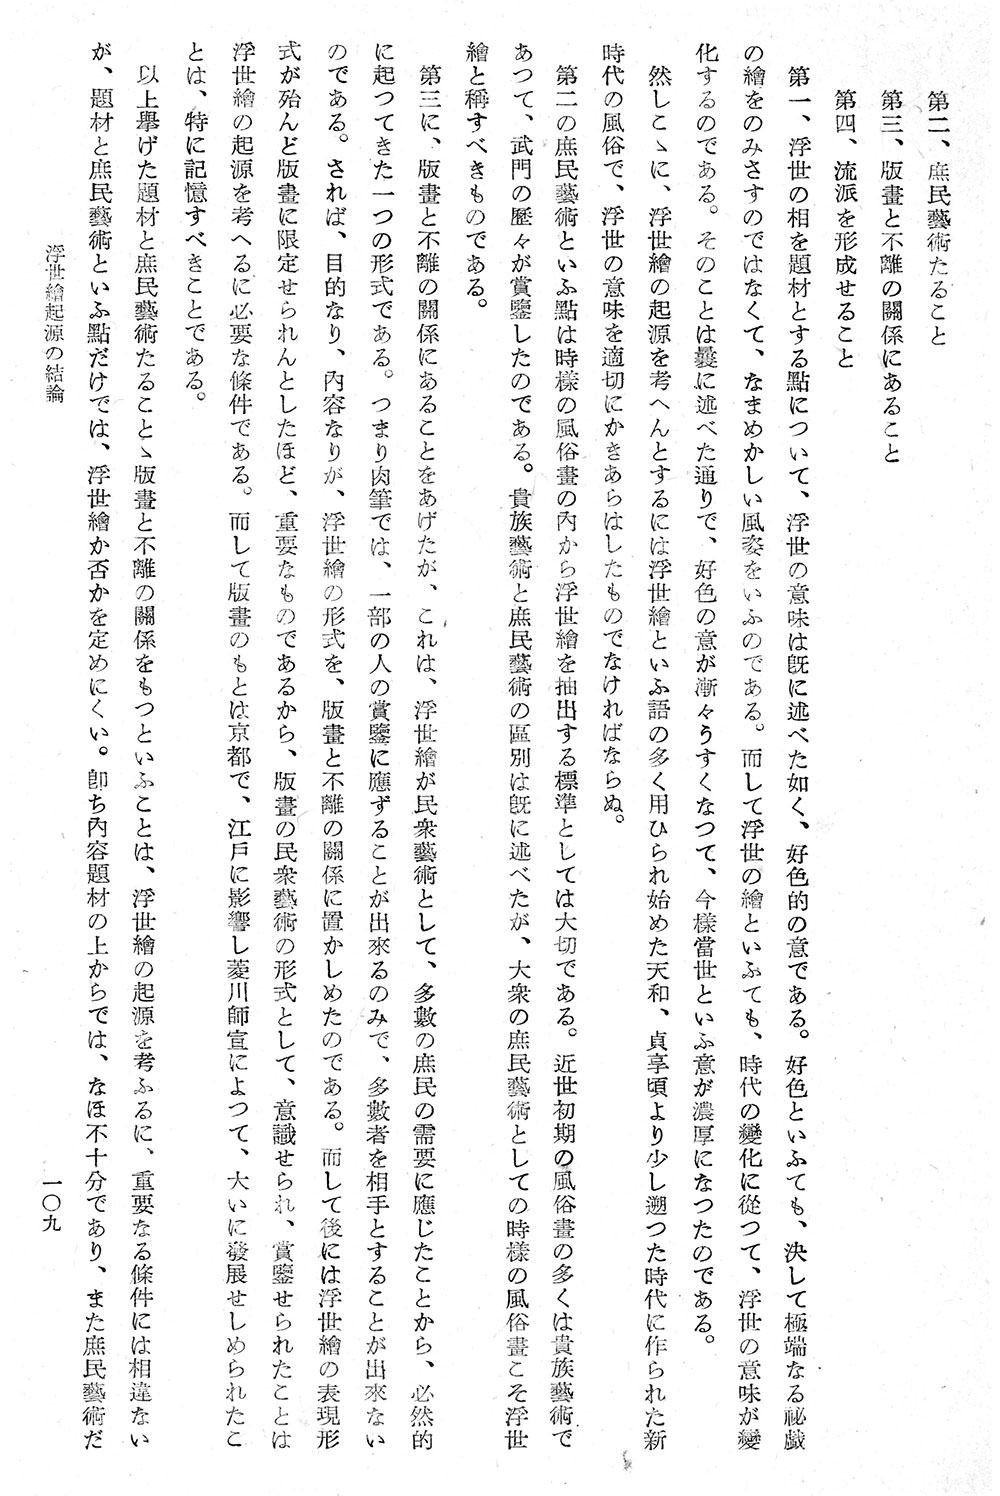 第二、庶民藝術たること
第三、版畫と不離の關係にあること
第四、流派を形成せること
第一、浮世の相を題材とする點について、浮世の意味は旣に述べた如く、好色的の意である。好色といふても、決して極端なる祕戲
の繪をのみさすのではなくて、なまめかしい風姿をいふのである。而して浮世の繪といふても、時代の變化に從つて、浮世の意味が變
化するのである。そのことは曩に述べた通りで、好色の意が漸々うすくなつて、今樣當世といふ意が濃厚になつたのである。
然しこゝに、浮世繪の起源を考へんとするには浮世繪といふ語の多く用ひられ始めた天和、貞享頃より少し遡つた時代に作られた新
時代の風俗で、浮世の意味を適切にかきあらはしたものでなければならぬ。
第二の庶民藝術といふ點は時樣の風俗畫の內から浮世繪を抽出する標準としては大切である。近世初期の風俗畫の多くは貴族藝術で
あつて、武門の歷々が賞鑒したのである。貴族藝術と庶民藝術の區別は旣に述べたが、大衆の庶民藝術としての時樣の風俗畫こそ浮世
繪と稱すべきものである。
第三に、版畫と不離の關係にあることをあげたが、これは、浮世繪が民衆藝術として、多數の庶民の需要に應じたことから、必然的
に起つてきた一つの形式である。つまり肉筆では、一部の人の賞鑒に應ずることが出來るのみで、多數者を相手とすることが出來ない
のである。されば、目的なり、內容なりが、浮世繪の形式を、版畫と不離の關係に置かしめたのである。而して後には浮世繪の表現形
式が殆んど版畫に限定せられんとしたほど、重要なものであるから、版畫の民衆藝術の形式として、意識せられ、賞鑒せられたことは
浮世繪の起源を考へるに必要な條件である。而して版畫のもとは京都で、江戶に影響し菱川師宣によつて、大いに發展せしめられたこ
とは、特に記憶すべきことである。
以上擧げた題材と庶民藝術たることゝ版畫と不離の關係をもつといふことは、浮世繪の起源を考ふるに、重要なる條件には相違ない
が、題材と庶民藝術といふ點だけでは、浮世繪か否かを定めにくい。卽ち內容題材の上からでは、なほ不十分であり、また庶民藝術だ
浮世繪起源の結論
一〇九